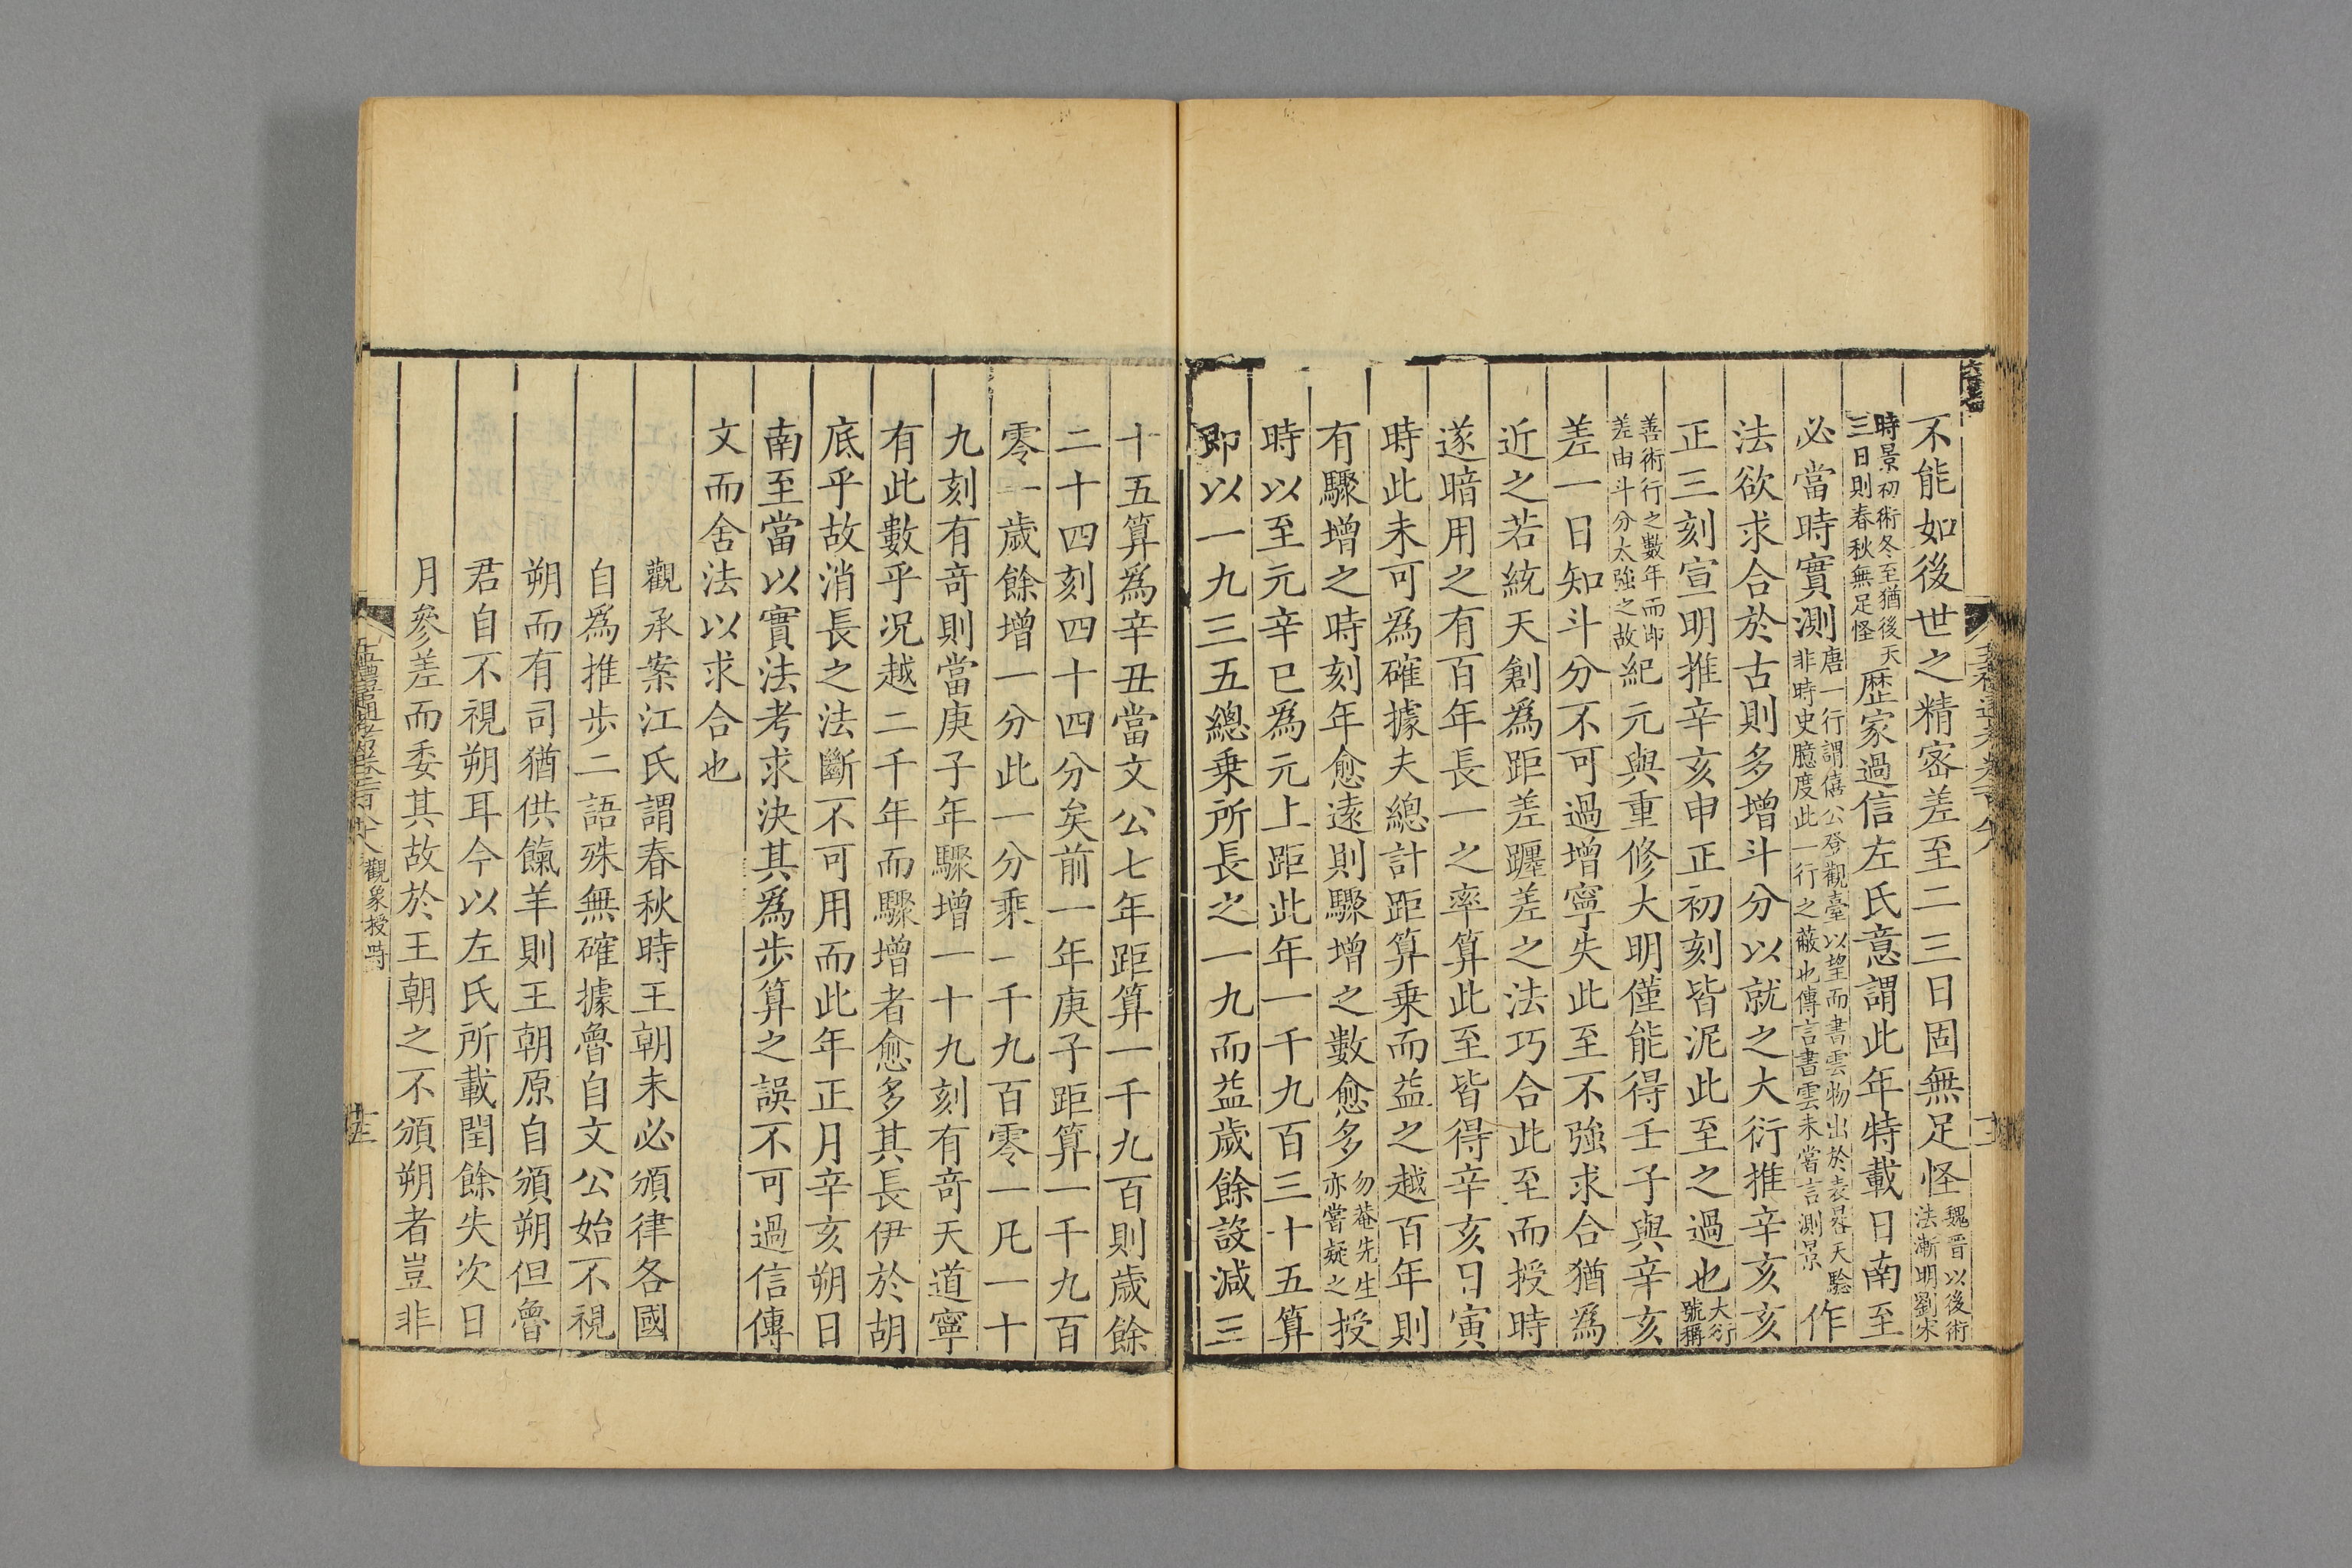 不能如後世之精密差至二三日固無足怪魏晉以後術法漸明劉宋
時景初術冬至猶後天三日則春秋無足怪歴家過信左氏意謂此年特載日南至
必當時實測唐一行謂僖公登觀臺以望而書雲物出於表晷天驗非時史臆度此一行之蔽也傳言書雲未嘗言測景作
法欲求合於古則多增斗分以就之大衍推辛亥亥
正三刻宣明推辛亥申正初刻皆泥此至之過也大衍號稱
善術行之數年而即差由斗分太強之故紀元與重修大明僅能得壬子與辛亥
差一日知斗分不可過增寧失此至不強求合猶為
近之若統天創為距差躔差之法巧合此至而授時
遂暗用之有百年長一之率算此至皆得辛亥日寅
時此未可為確據夫總計距算乗而益之越百年則
有驟增之時刻年愈遠則驟增之數愈多勿菴先生亦嘗疑之授
時以至元辛巳為元上距此年一千九百三十五算
即以一九三五總乗所長之一九而益歲餘設減三
十五算爲辛丑當文公七年距算一千九百則歲餘
二十四刻四十四分矣前一年庚子距算一千九百
零一歲餘增一分此一分乘一千九百零一凡一十
九刻有奇則當庚子年驟增一十九刻有奇天道寧
有此數乎況越二千年而驟增者愈多其長伊於胡
底乎故消長之法斷不可用而此年正月辛亥朔日
南至當以實法考求決其爲步算之誤不可過信傳
文而舍法以求合也
觀承案江氏謂春秋時王朝未必頒律各國
自爲推步二語殊無確據魯自文公始不視
朔而有司猶供餼羊則王朝原自頒朔但魯
君自不視朔耳今以左氏所載閏餘失次日
月參差而委其故於王朝之不頒朔者豈非
觀象授時